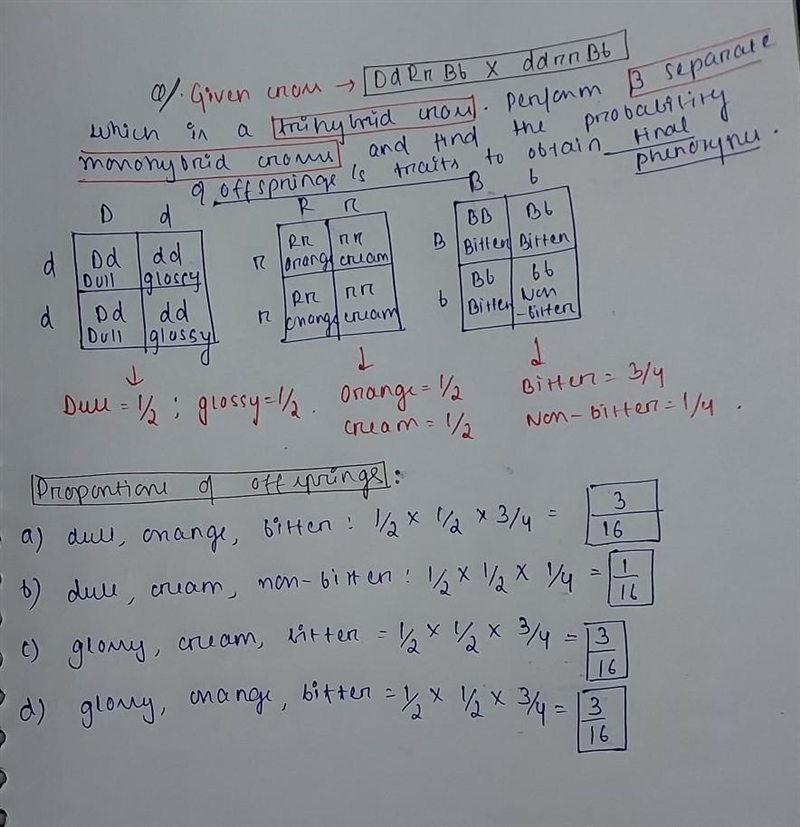 Q/. Given cross → DdRrBb X ddrrBb
which is a trihybrid cross. Perform 3 separate
monohybrid crosses and find the probability
of offsprings traits to obtain final
phenotypes.
D d
R r
B b
d Dd dd
Dull glossy
d Dd dd
Dull glossy
r Rr rr
orange cream
r Rr rr
orange cream
B BB Bb
Bitter Bitter
b Bb bb
Bitter Non
-bitter
↓ ↓ ↓
Dull = 1/2 ; glossy = 1/2.
orange = 1/2
cream = 1/2
Bitter = 3/4
Non-bitter = 1/4 .
Proportions of offsprings :
a) dull, orange, bitter : 1/2 × 1/2 × 3/4 = 3/16
b) dull, cream, non-bitter : 1/2 × 1/2 × 1/4 = 1/16
c) glossy, cream, bitter = 1/2 × 1/2 × 3/4 = 3/16
d) glossy, orange, bitter = 1/2 × 1/2 × 3/4 = 3/16